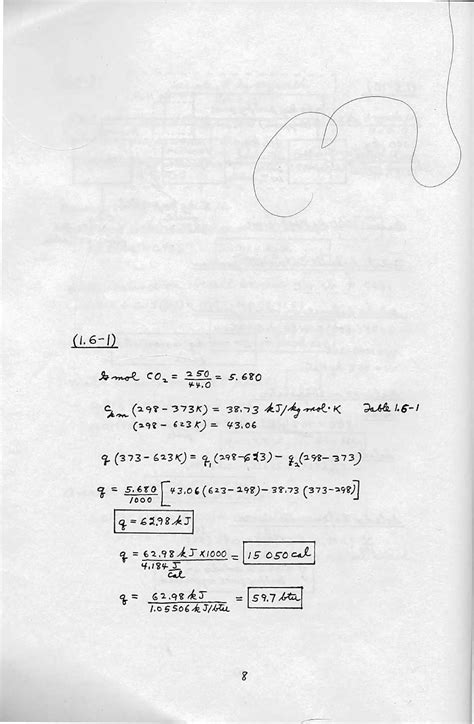 (1.6-1)
g mol CO₂ = 250/44.0 = 5.680
Cpm (298-373K) = 38.73 kJ/kg mol·K Table 1.6-1
(298-623K) = 43.06
q (373-623K) = q₁ (298-623) - q₂ (298-373)
q = 5.680/1000 [43.06 (623-298) - 38.73 (373-298)]
q = 62.98 kJ
q = 62.98 kJ x1000 / 4.184 J/cal = 15 050 cal
q = 62.98 kJ / 1.05506 kJ/btu = 59.7 btu
8